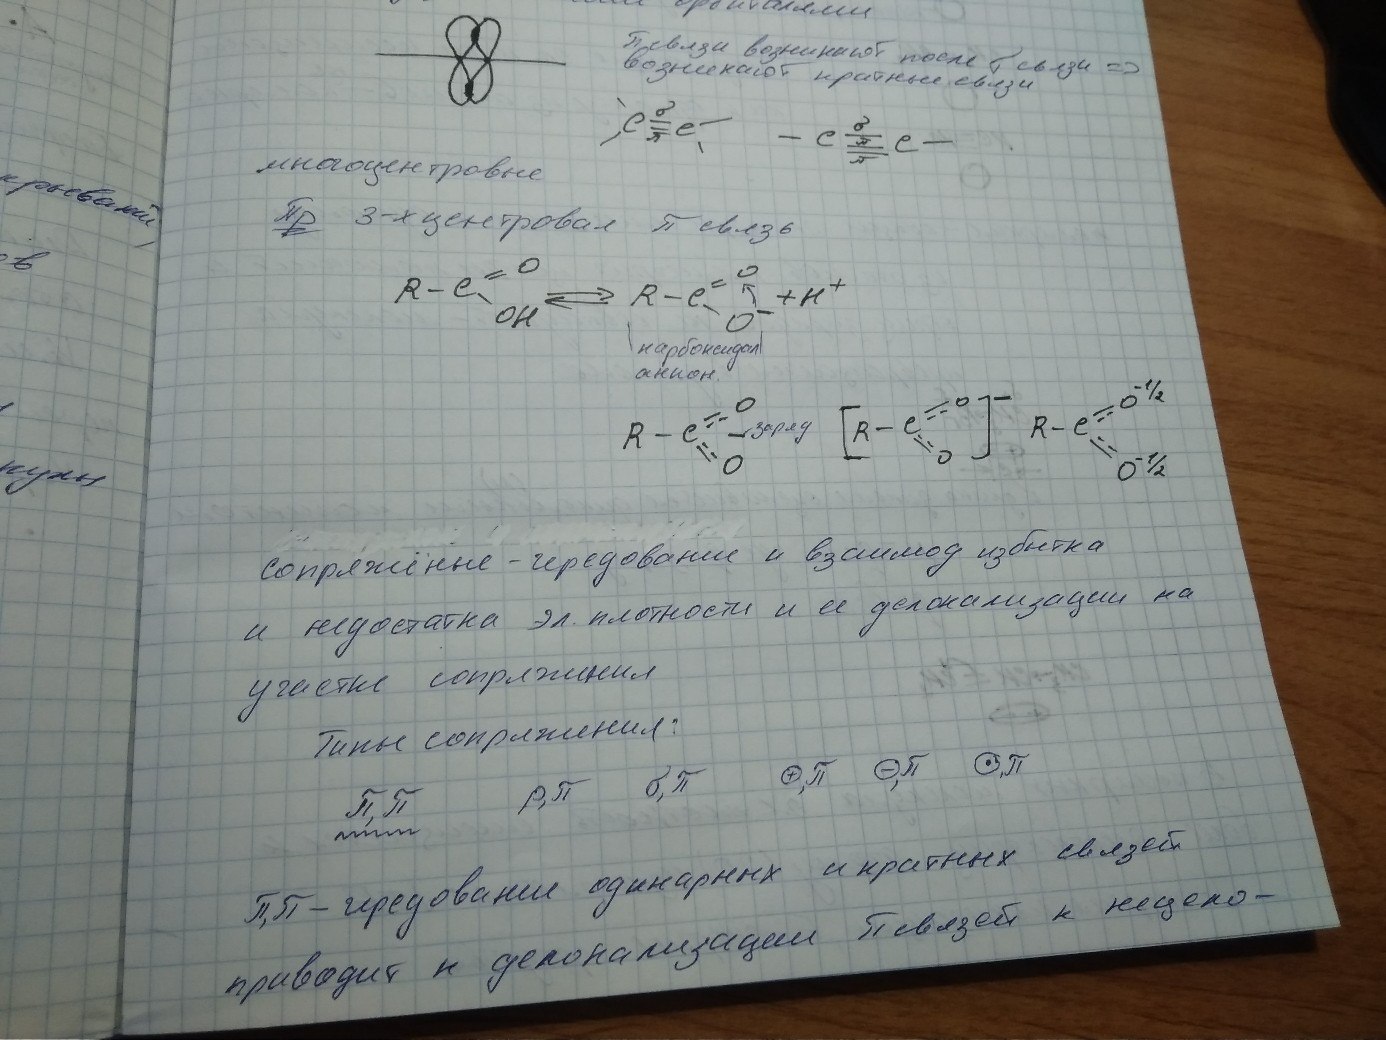 орбиталями
π связи возникают после σ связи =>
возникают кратные связи
C σ π C
– C σ π π C –
многоцентровые
Пр 3-х центровая π связь
R – C = O OH ⇌ R – C = O O⁻ + H⁺
карбоксидал
анион.
R – C O O – заряд [R – C O O]⁻ R – C O⁻¹/² O⁻¹/²
сопряжение – чередование и взаимод избытка
и недостатка эл. плотности и ее делокализации на
участке сопряжения
Типы сопряжения:
π,π p,π σ,π ⊕,π ⊖,π ⊙,π
π,π – чередование одинарных и кратных связей
приводит к делокализации π связей к нецело-
крываний,
ов